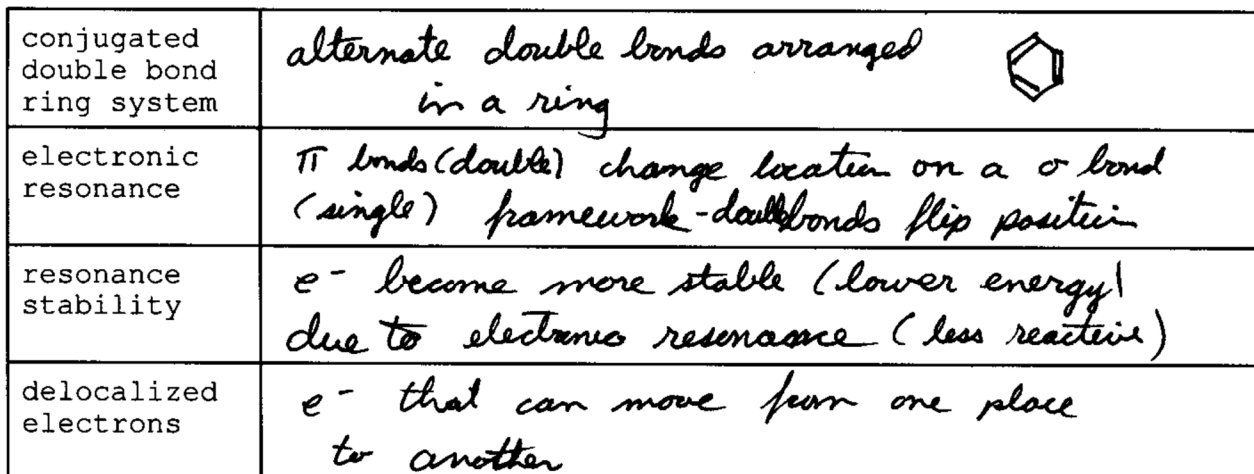 conjugated
double bond
ring system
alternate double bonds arranged
in a ring
electronic
resonance
π bonds (double) change location on a σ bond
(single) framework - double bonds flip position
resonance
stability
e⁻ become more stable (lower energy)
due to electronic resonance (less reactive)
delocalized
electrons
e⁻ that can move from one place
to another